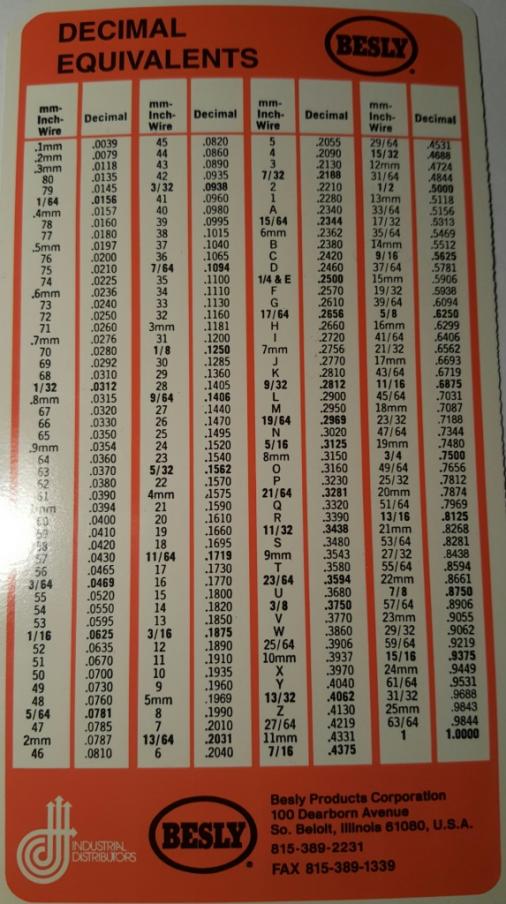 DECIMAL
EQUIVALENTS
BESLY
mm-
Inch-
Wire
Decimal
.1mm .0039
.2mm .0079
.3mm .0118
80 .0135
79 .0145
1/64 .0156
.4mm .0157
78 .0160
77 .0180
.5mm .0197
76 .0200
75 .0210
74 .0225
.6mm .0236
73 .0240
72 .0250
71 .0260
.7mm .0276
70 .0280
69 .0292
68 .0310
1/32 .0312
.8mm .0315
67 .0320
66 .0330
65 .0350
.9mm .0354
64 .0360
63 .0370
62 .0380
61 .0390
.0394
60 .0400
59 .0410
58 .0420
57 .0430
56 .0465
3/64 .0469
55 .0520
54 .0550
53 .0595
1/16 .0625
52 .0635
51 .0670
50 .0700
49 .0730
48 .0760
5/64 .0781
47 .0785
2mm .0787
46 .0810
mm-
Inch-
Wire
Decimal
45 .0820
44 .0860
43 .0890
42 .0935
3/32 .0938
41 .0960
40 .0980
39 .0995
38 .1015
37 .1040
36 .1065
7/64 .1094
35 .1100
34 .1110
33 .1130
32 .1160
3mm .1181
31 .1200
1/8 .1250
30 .1285
29 .1360
28 .1405
9/64 .1406
27 .1440
26 .1470
25 .1495
24 .1520
23 .1540
5/32 .1562
22 .1570
4mm .1575
21 .1590
20 .1610
19 .1660
18 .1695
11/64 .1719
17 .1730
16 .1770
15 .1800
14 .1820
13 .1850
3/16 .1875
12 .1890
11 .1910
10 .1935
9 .1960
5mm .1969
8 .1990
7 .2010
13/64 .2031
6 .2040
mm-
Inch-
Wire
Decimal
5 .2055
4 .2090
3 .2130
7/32 .2188
2 .2210
1 .2280
A .2340
15/64 .2344
6mm .2362
B .2380
C .2420
D .2460
1/4 & E .2500
F .2570
G .2610
17/64 .2656
H .2660
I .2720
7mm .2756
J .2770
K .2810
9/32 .2812
L .2900
M .2950
19/64 .2969
N .3020
5/16 .3125
8mm .3150
O .3160
P .3230
21/64 .3281
Q .3320
R .3390
11/32 .3438
S .3480
9mm .3543
T .3580
23/64 .3594
U .3680
3/8 .3750
V .3770
W .3860
25/64 .3906
10mm .3937
X .3970
Y .4040
13/32 .4062
Z .4130
27/64 .4219
11mm .4331
7/16 .4375
mm-
Inch-
Wire
Decimal
29/64 .4531
15/32 .4688
12mm .4724
31/64 .4844
1/2 .5000
13mm .5118
33/64 .5156
17/32 .5313
35/64 .5469
14mm .5512
9/16 .5625
37/64 .5781
15mm .5906
19/32 .5938
39/64 .6094
5/8 .6250
16mm .6299
41/64 .6406
21/32 .6562
17mm .6693
43/64 .6719
11/16 .6875
45/64 .7031
18mm .7087
23/32 .7188
47/64 .7344
19mm .7480
3/4 .7500
49/64 .7656
25/32 .7812
20mm .7874
51/64 .7969
13/16 .8125
21mm .8268
53/64 .8281
27/32 .8438
55/64 .8594
22mm .8661
7/8 .8750
57/64 .8906
23mm .9055
29/32 .9062
59/64 .9219
15/16 .9375
24mm .9449
61/64 .9531
31/32 .9688
25mm .9843
63/64 .9844
1 1.0000
INDUSTRIAL
DISTRIBUTORS
BESLY
Besly Products Corporation
100 Dearborn Avenue
So. Beloit, Illinois 61080, U.S.A.
815-389-2231
FAX 815-389-1339